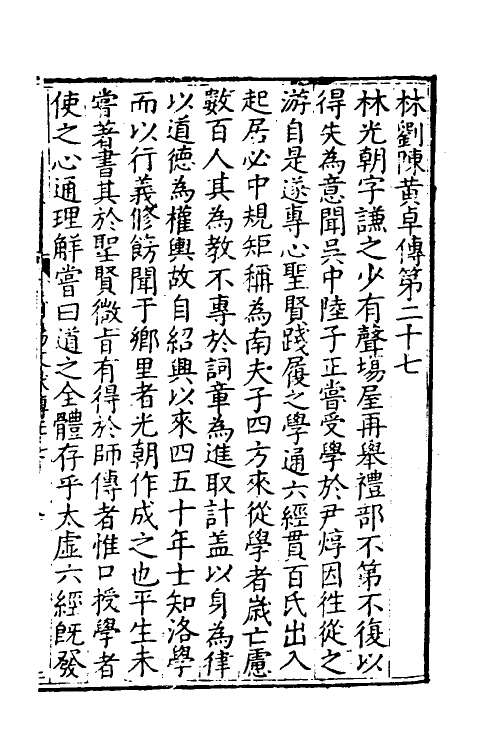 林劉陳黃卓傳第二十七
林光朝字謙之少有聲場屋再舉禮部不第不復以
得失為意聞吳中陸子正嘗受學於尹焞因徃從之
游自是遂專心聖賢踐履之學通六經貫百氏出入
起居必中規矩稱為南夫子四方來從學者嵗亡慮
數百人其為教不專於詞章為進取計盖以身為律
以道德為權輿故自紹興以來四五十年士知洛學
而以行義修飭聞于鄉里者光朝作成之也平生未
嘗著書其於聖賢微旨有得於師傳者惟口授學者
使之心通理解嘗曰道之全體存乎太虛六經旣發